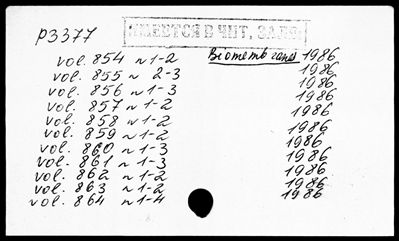 P3377 ИМЕЕТСЯ В ЧИТ. ЗАЛЕ
vol. 854 N 1-2 Biomembranes 1986
vol. 855 N 2-3 1986
vol. 856 N 1-3 1986
vol. 857 N 1-2 1986
vol. 858 N 1-2 1986
vol. 859 N 1-2 1986
vol. 860 N 1-3 1986
vol. 861 N 1-3 1986
vol. 862 N 1-2 1986
vol. 863 N 1-2 1986
vol. 864 N 1-4 1986